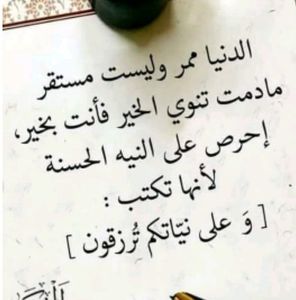 الدنيا ممر وليست مستقر
مادمت تنوي الخير فأنت بخير،
إحرص على النيه الحسنة
لأنها تكتب :
[ وَ على نيّاتكم تُرزقون ]